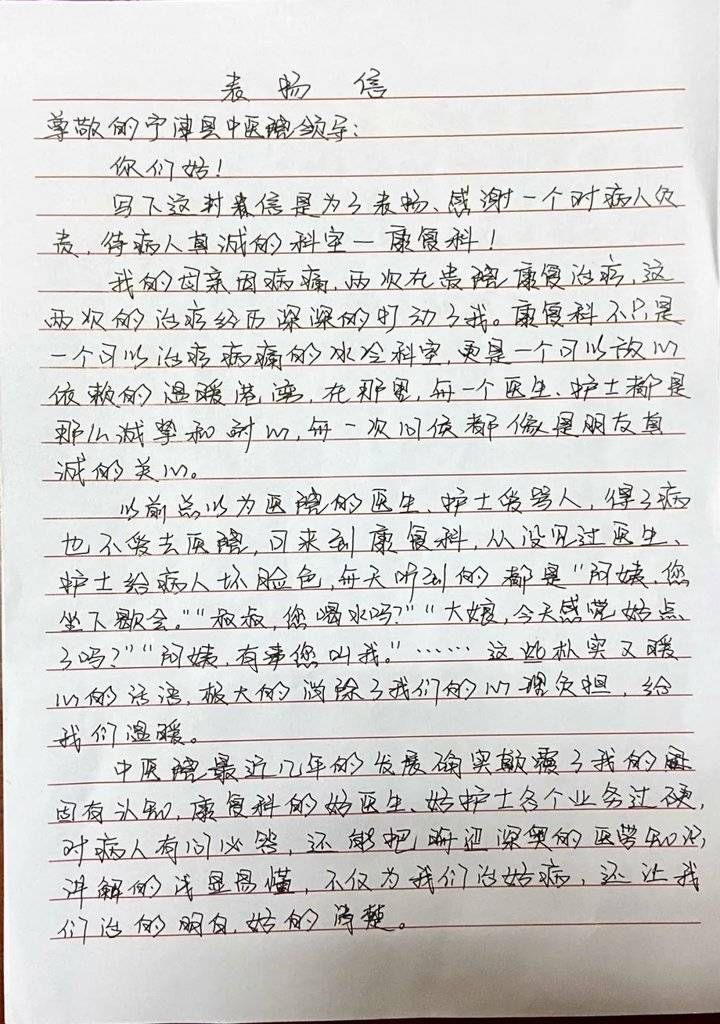 表扬信
尊敬的宁津县中医院领导:
你们好!
写下这封表信是为了表扬、感谢一个对病人负
责,待病人真诚的科室—康复科!
我的母亲因病痛,两次在贵院康复治疗,这
两次的治疗经历深深的打动了我。康复科不只是
一个可以治疗病痛的冰冷科室,更是一个可以放心
依赖的温暖港湾,在那里,每一个医生、护士都是
那么诚挚和耐心,每一次问候都像是朋友真
诚的关心。
以前总以为医院的医生、护士爱骂人,得了病
也不爱去医院,可来到康复科,从没见过医生、
护士给病人坏脸色,每天听到的都是"阿姨,您
坐下歇会。""叔叔,您喝水吗?""大娘,今天感觉好点
了吗?""阿姨,有事您叫我。"……这些朴实又暖
心的话语,极大的消除了我们的心理负担,给
我们温暖。
中医院最近几年的发展确实颠覆了我的
固有认知,康复科的好医生、好护士各个业务过硬,
对病人有问必答,还能把晦涩深奥的医学知识,
讲解的浅显易懂,不仅为我们治好病,还让我
们治的明白,好的清楚。